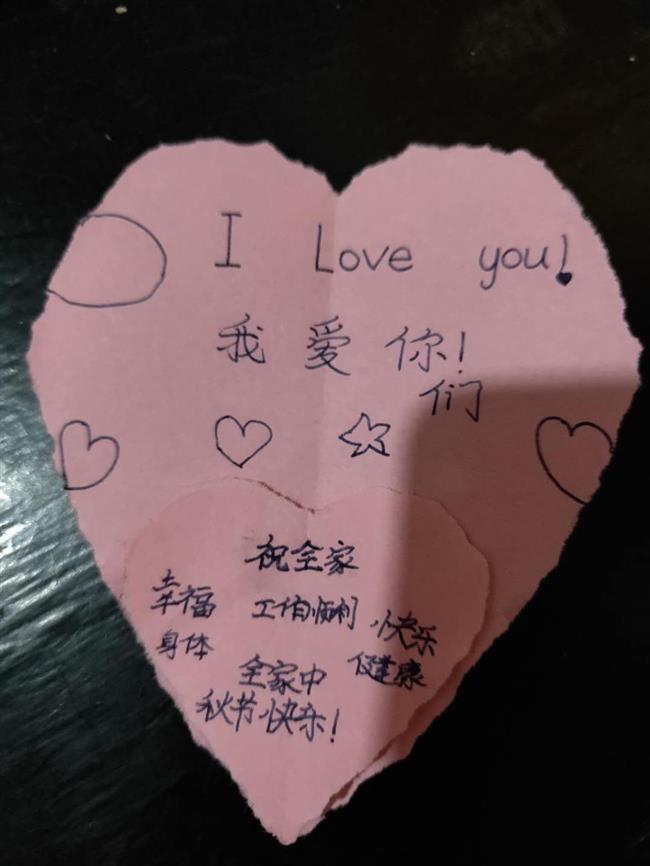 I Love you!
我爱你!
们
祝全家
幸福 工作顺利 快乐
身体 健康
全家中
秋节快乐!